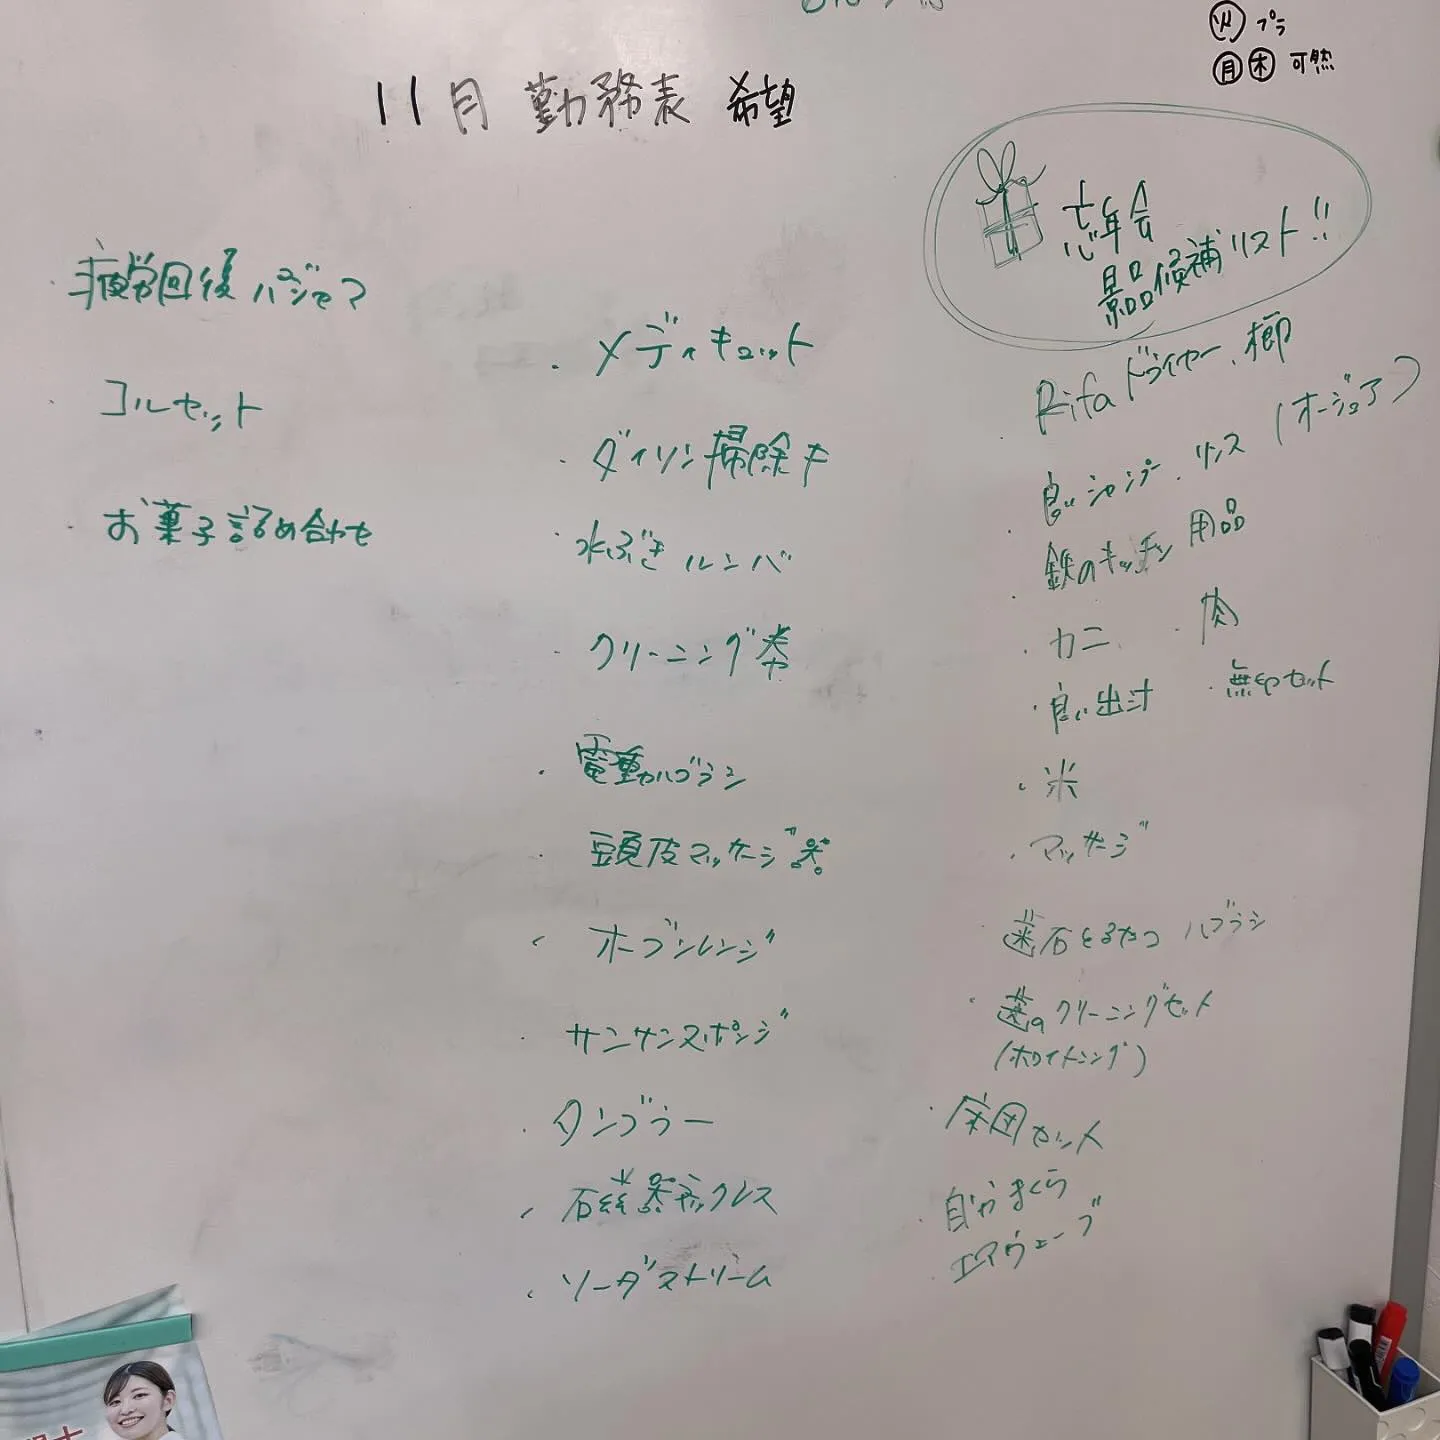 火 プラ
月 木 可燃
11月 勤務表 希望
忘年会
景品候補リスト!!
・Rifaドライヤー、櫛
・良いシャンプー、リンス (オージュア)
・鉄のキッチン用品
・カニ ・肉
・良い出汁 ・無印セット
・米
・マッサージ
歯石とるやつ ハブラシ
・歯のクリーニングセット
(ホワイトニング)
・布団セット
・自分まくら
・エアウェーブ
・メディキュット
・ダイソン掃除キ
水ぶきルンバ
・クリーニング券
・電動ハブラシ
・頭皮マッサージ器
・オーブンレンジ
・サンサンスポンジ
・タンブラー
・磁器ネックレス
・ソーダストリーム
・疲労回復パジャマ
・コルセット
・お菓子詰め合わせ